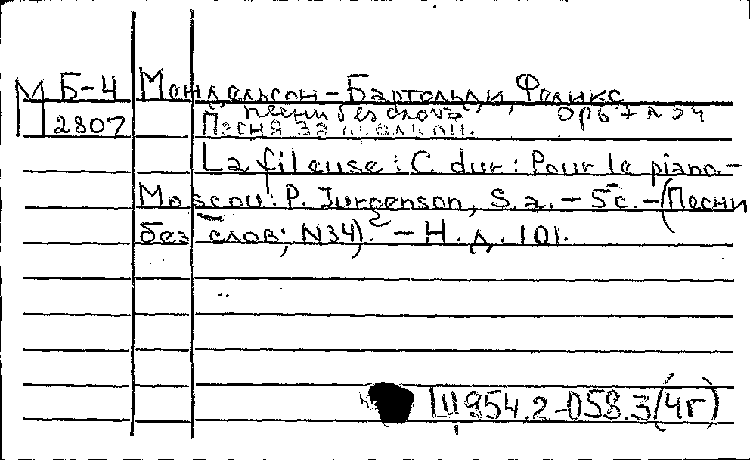 М Б-4 Мендельсон-Бартольди, Феликс
Песни без словъ ор 67 № 34
2807 Песня за прялкой.
La fileuse: C. dur: Pour le piano.-
Moscou: P. Jurgenson, S. a. - 5 с. - (Песни
без слов; N34). - Н. д. 101.
Щ954.2-058.3(4Г)